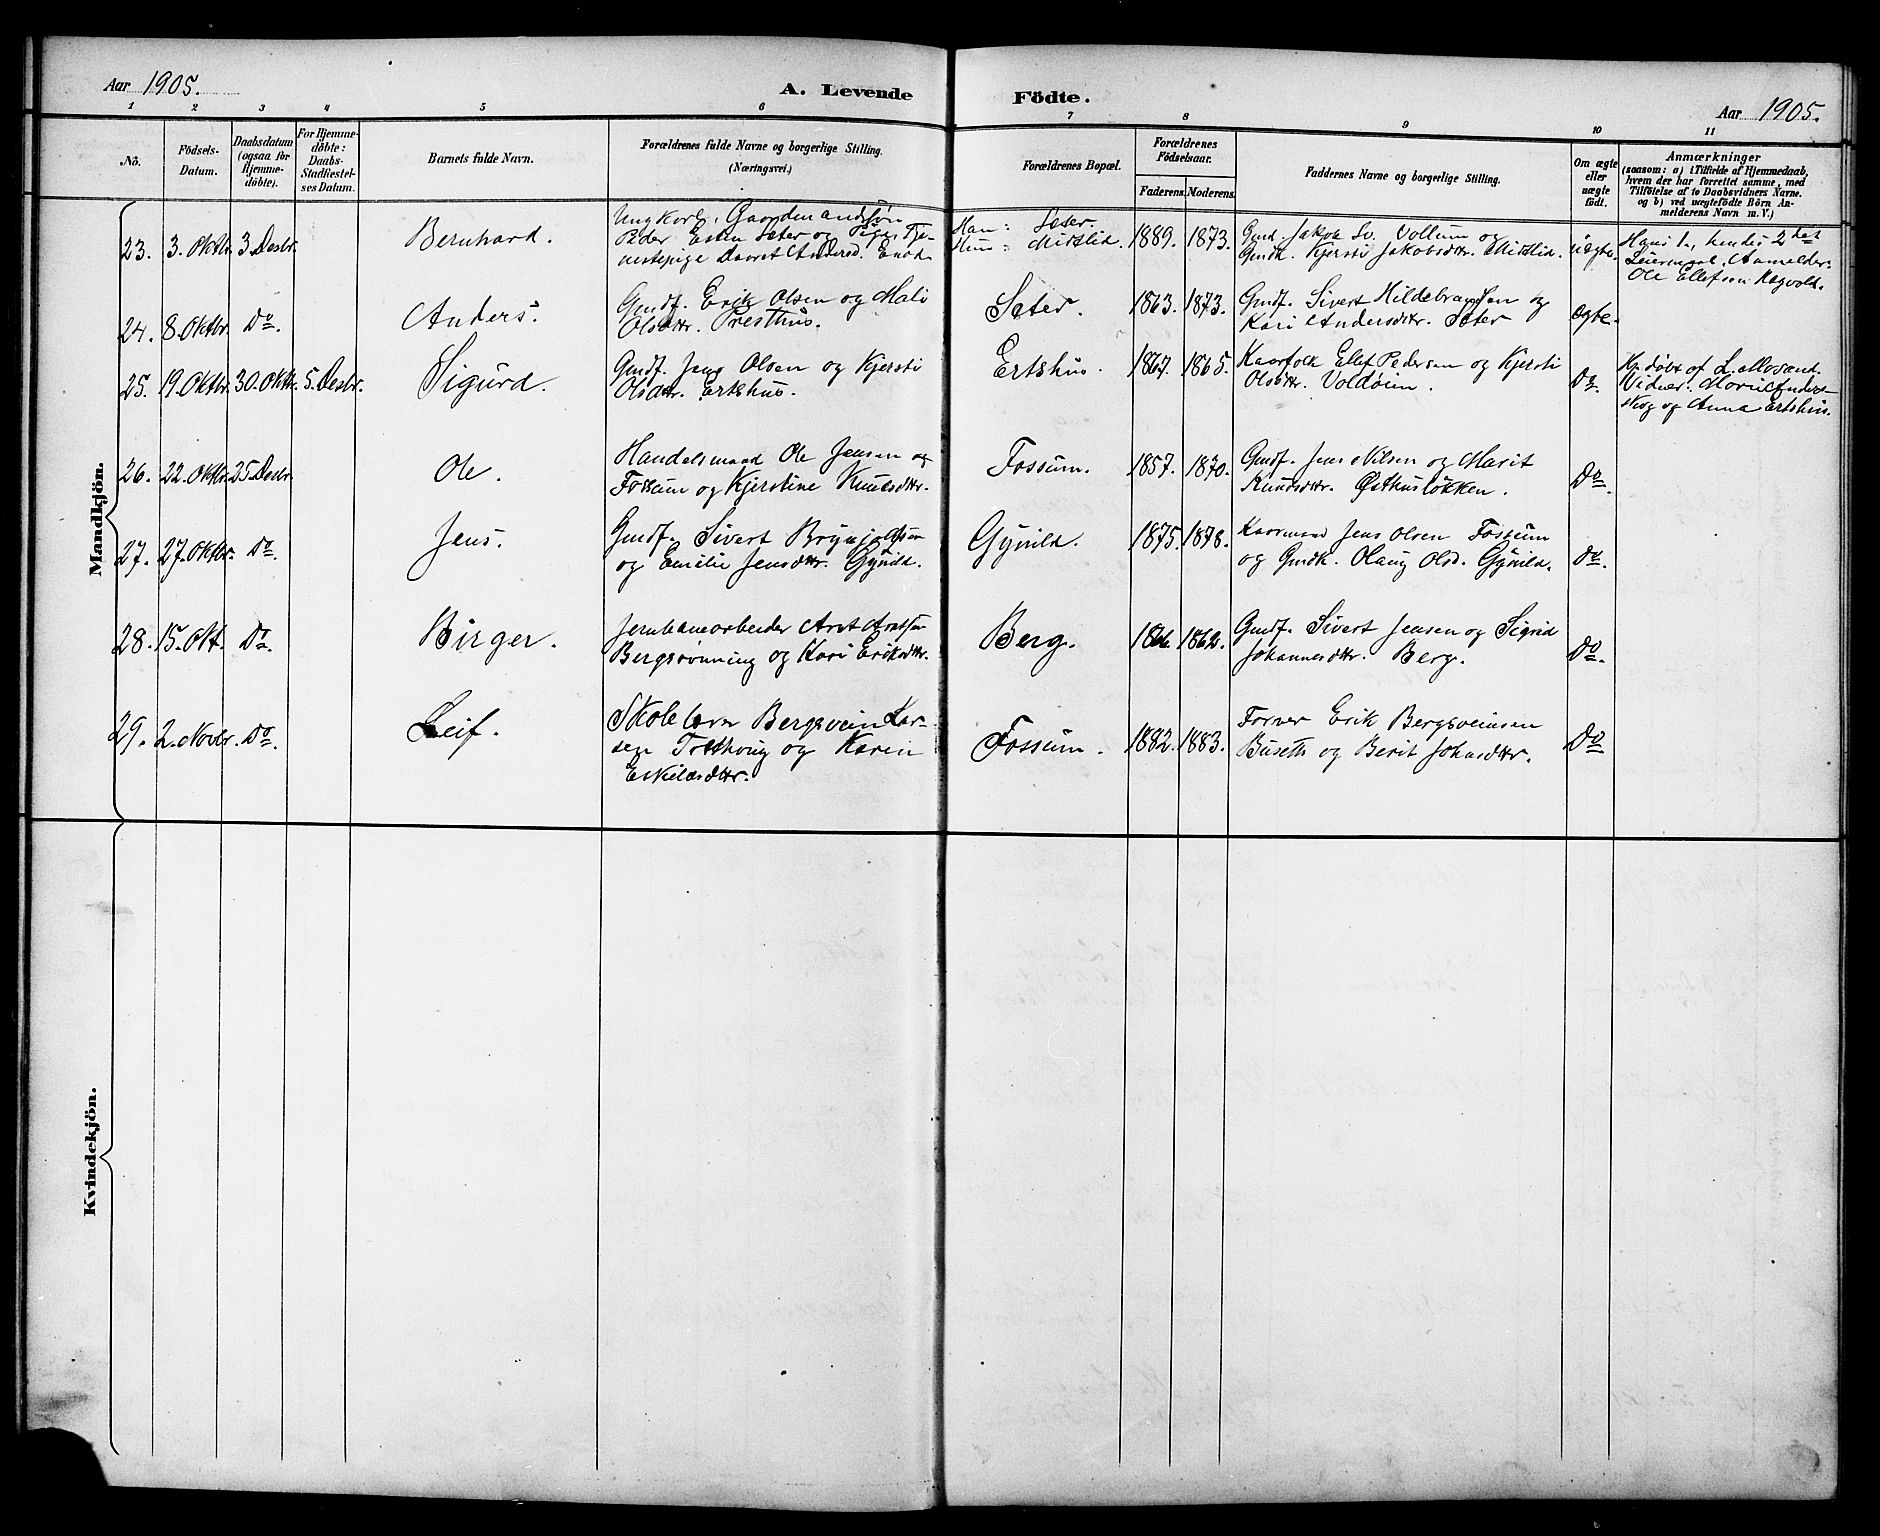 Aar 1905.
A. Levende Födte.
Aar 1905.
1 2 3 4 5 6 7 8 9 10 11
No.
Födsels-
Datum.
Daabsdatum
(ogsaa for
Hjemme-
döbte).
For Hjemme-
döbte:
Daabs-
Stadfæstel-
ses Datum.
Barnets fulde Navn.
Forældrenes fulde Navne og borgerlige Stilling.
(Næringsvei.)
Forældrenes Bopæl.
Forældrenes
Födselsaar.
Faderens. Moderens.
Faddernes Navne og borgerlige Stilling.
Om ægte
eller
uægte
födt.
Anmærkninger
(saasom: a) i Tilfælde af Hjemmedaab,
hvem der har forrettet samme, med
Tilföielse af to Daabsvidners Navne.
og b) ved uægtefödte Börn An-
melderens Navn m. V.)
Mandkjön.
23. 3. Oktbr. 3. Desbr. Bernhard.
Ungkarl, Gaardmandssön
Peder Esten Sæter og Pige, Tje-
nestepige Daaret Andersd.
Han: Sæter.
Hun: Midtlid.
1889. 1873.
Gmd. Jakob Sv. Vollum og
Gmdk. Kjersti Jakobsdtr. Midtlid.
uægte.
Hans 1., hendes 2det
Leiermaal. Anmelder:
Ole Ellefsen Kregvold.
24. 8. Oktbr. Do. Anders.
Gmdf. Erik Olsen og Mali
Olsdtr. Presthus.
Sæter. 1863. 1873.
Gmdf. Sivert Hildebrandsen og
Kari Andersdtr. Sæter
ægte.
25. 19. Oktbr. 30. Oktbr. 5. Desbr. Sigurd.
Gmdf. Jens Olsen og Kjersti
Olsdtr. Ertshus.
Ertshus. 1867. 1865.
Kaarfolk Ellef Pedersen og Kjersti
Olsdtr. Voldöien.
Do.
Hjdöbt af L. Mosand.
Vidner: Marie Anders-
skog og Anna Ertshus.
26. 22. Oktbr. 25. Desbr. Ole.
Handelsmand Ole Jensen
Fossum og Kjerstine Knutsdtr.
Fossum. 1857. 1870.
Gmdf. Jens Nilsen og Marit
Knudsdtr. Østhuslökken.
Do.
27. 27. Oktbr. Do. Jens.
Gmdf. Sivert Brynjolfsen
og Emilie Jensdtr. Gynild.
Gynild. 1875. 1878.
Kaarmand Jens Olsen Fossum
og Gmdk. Olaug Olsd. Gynild.
Do.
28. 15. Okt. Do. Birger.
Jernbanearbeider Arnt Arntsen
Bergsrönning og Kari Eriksdtr.
Berg. 1866. 1862.
Gmdf. Sivert Jensen og Sigrid
Johannesdtr. Berg.
Do.
29. 2. Novbr. Do. Leif.
Skolelærer Bergsvein Lar-
sen og Karen
Eskilasdtr.
Fossum. 1882. 1883.
Forver Erik Bergsveinsen
Buseth og Berit Johnsdtr.
Do
Kvindekjön.